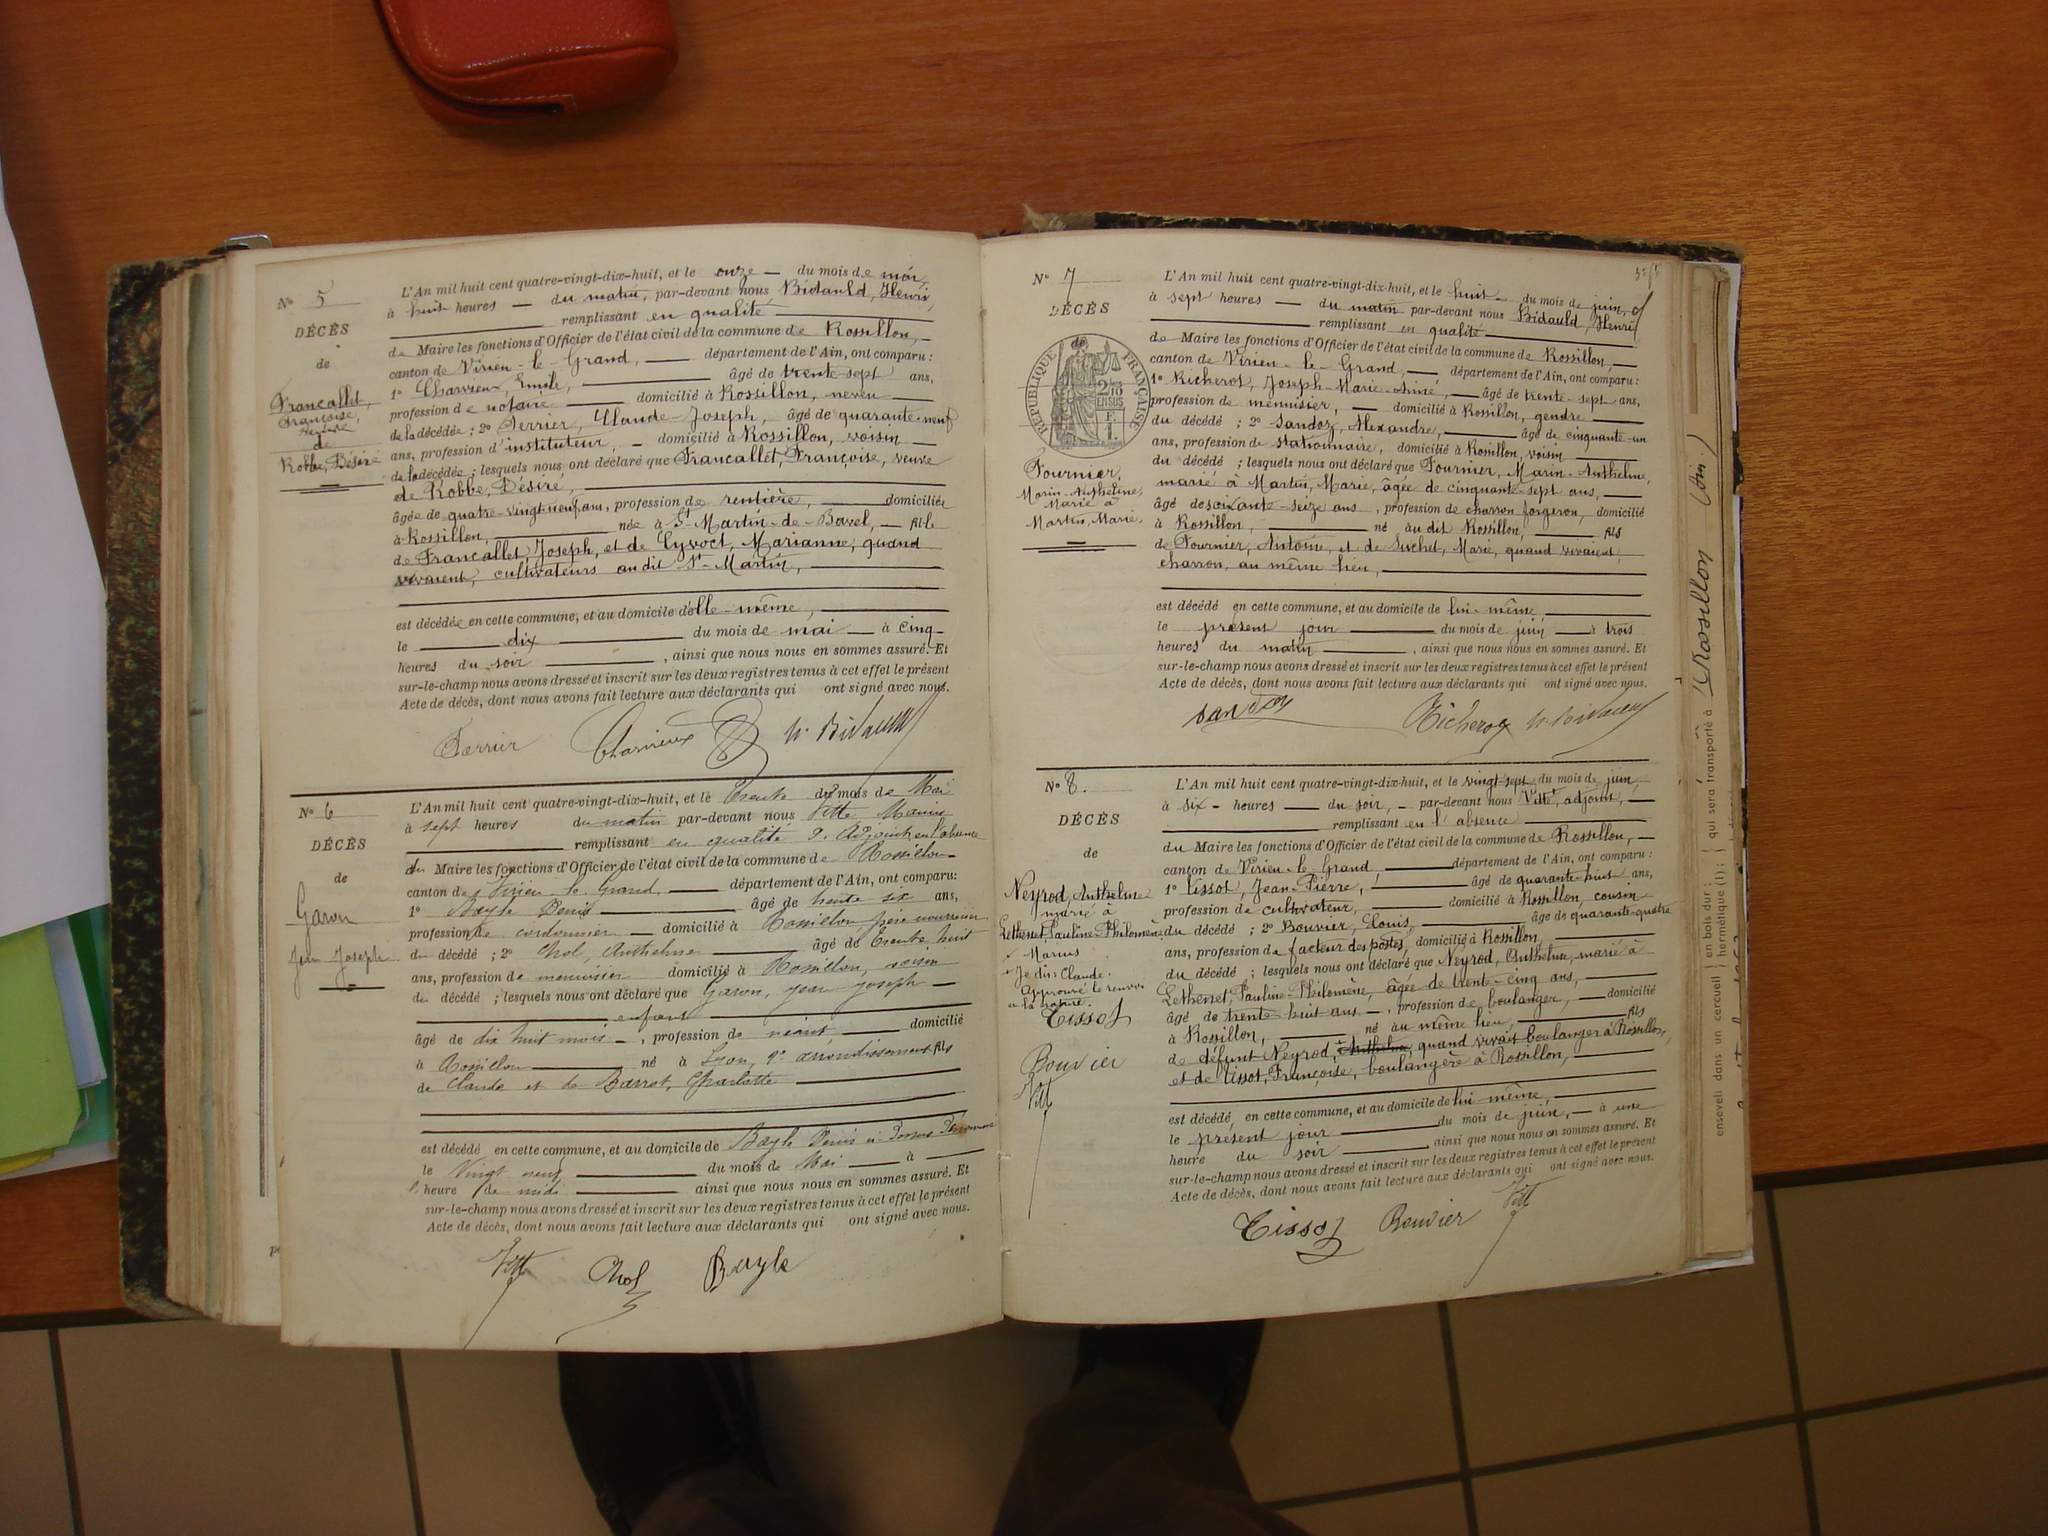 N° 5
DÉCÈS
de
Francallet,
Françoise,
veuve
de
Robbe, Désiré
L'An mil huit cent quatre-vingt-dix-huit, et le onze du mois de mai,
à huit heures du matin, par-devant nous Bidauld, Henri,
remplissant en qualité
de Maire les fonctions d'Officier de l'état civil de la commune de Rossillon,
canton de Virieu-le-Grand, département de l'Ain, ont comparu :
1° Charvieux, Emile, âgé de trente-sept ans,
profession de notaire domicilié à Rossillon, neveu
de la décédée ; 2° Ferrier, Claude-Joseph, âgé de quarante-neuf
ans, profession d'instituteur domicilié à Rossillon, voisin
de la décédée ; lesquels nous ont déclaré que Francallet, Françoise, veuve
de Robbe, Désiré,
âgée de quatre-vingt-neuf ans, profession de rentière, domiciliée
à Rossillon, née à St Martin-de-Bavel, fille
de Francallet, Joseph, et de Cyvoct, Marianne, quand
vivaient, cultivateurs au dit St-Martin,
est décédée en cette commune, et au domicile d'elle-même,
le dix du mois de mai à cinq
heures du soir, ainsi que nous nous en sommes assuré. Et
sur-le-champ nous avons dressé et inscrit sur les deux registres tenus à cet effet le présent
Acte de décès, dont nous avons fait lecture aux déclarants qui ont signé avec nous.
Ferrier Charvieux H. Bidauld
N° 6
DÉCÈS
de
Garon
Jean Joseph
L'An mil huit cent quatre-vingt-dix-huit, et le Trente du mois de Mai
à sept heures du matin par-devant nous Vitte Marius
remplissant en qualité d'Adjoint en l'absence
du Maire les fonctions d'Officier de l'état civil de la commune de Rossillon
canton de Virieu-le-Grand, département de l'Ain, ont comparu:
1° Bayle Denis âgé de trente six ans,
profession de cordonnier domicilié à Rossillon père nourricier
du décédé ; 2° Chol, Anthelme âgé de Trente huit
ans, profession de menuisier domicilié à Rossillon, voisin
du décédé ; lesquels nous ont déclaré que Garon, Jean Joseph
enfant
âgé de dix huit mois, profession de néant domicilié
à Rossillon né à Lyon, 2e arrondissement fils
de Claude et de Barret, Charlotte
est décédé en cette commune, et au domicile de Bayle Denis
le Vingt neuf du mois de Mai à
heure de midi ainsi que nous nous en sommes assuré. Et
sur-le-champ nous avons dressé et inscrit sur les deux registres tenus à cet effet le présent
Acte de décès, dont nous avons fait lecture aux déclarants qui ont signé avec nous.
Vitte Chol Bayle
N° 7
DÉCÈS
RÉPUBLIQUE FRANÇAISE
Fournier,
Marin-Anthelme,
Marié à
Martin, Marie.
L'An mil huit cent quatre-vingt-dix-huit, et le huit du mois de juin,
à sept heures du matin par-devant nous Bidauld, Henri
remplissant en qualité
de Maire les fonctions d'Officier de l'état civil de la commune de Rossillon,
canton de Virieu-le-Grand, département de l'Ain, ont comparu:
1° Richerot, Joseph-Marie-Aimé, âgé de trente-sept ans,
profession de menuisier, domicilié à Rossillon, gendre
du décédé ; 2° Sandoz, Alexandre, âgé de cinquante-un
ans, profession de stationnaire, domicilié à Rossillon, voisin
du décédé ; lesquels nous ont déclaré que Fournier, Marin-Anthelme,
marié à Martin, Marie, âgée de cinquante-sept ans,
âgé de soixante-seize ans, profession de charron forgeron, domicilié
à Rossillon, né au dit Rossillon, fils
de Fournier, Antoine, et de Suchet, Marie, quand vivaient,
charron, au même lieu,
est décédé en cette commune, et au domicile de lui-même
le présent jour du mois de juin à trois
heures du matin, ainsi que nous nous en sommes assuré. Et
sur-le-champ nous avons dressé et inscrit sur les deux registres tenus à cet effet le présent
Acte de décès, dont nous avons fait lecture aux déclarants qui ont signé avec nous.
Sandoz Richerot H. Bidauld
N° 8.
DÉCÈS
de
Neyrod, Anthelme
marié à
Lethenet, Pauline-Philomène
+ Marius
+ Jean-Claude.
Approuvé le renvoi
et la rature.
Tissot
Bouvier
Vitte
L'An mil huit cent quatre-vingt-dix-huit, et le vingt-sept du mois de juin,
à six heures du soir, par-devant nous Vitte, adjoint,
remplissant en l'absence
du Maire les fonctions d'Officier de l'état civil de la commune de Rossillon,
canton de Virieu-le-Grand, département de l'Ain, ont comparu :
1° Tissot, Jean-Pierre, âgé de quarante-huit ans,
profession de cultivateur, domicilié à Rossillon, cousin
du décédé ; 2° Bouvier, Louis, âgé de quarante-quatre
ans, profession de facteur des postes, domicilié à Rossillon,
du décédé ; lesquels nous ont déclaré que Neyrod, Anthelme, marié à
Lethenet, Pauline-Philomène, âgée de trente-cinq ans,
âgé de trente huit ans, profession de boulanger, domicilié
à Rossillon, né au même lieu, fils
de défunt Neyrod, + Anthelme, quand vivait boulanger à Rossillon,
et de Tissot, Françoise, boulangère à Rossillon,
est décédé en cette commune, et au domicile de lui même
le présent jour du mois de juin, à une
heure du soir ainsi que nous nous en sommes assuré. Et
sur-le-champ nous avons dressé et inscrit sur les deux registres tenus à cet effet le présent
Acte de décès, dont nous avons fait lecture aux déclarants qui ont signé avec nous.
Tissot Bouvier Vitte
qui sera transporté à Rossillon (Ain.)
enseveli dans un cercueil en bois dur ;
hermétique (1) ;